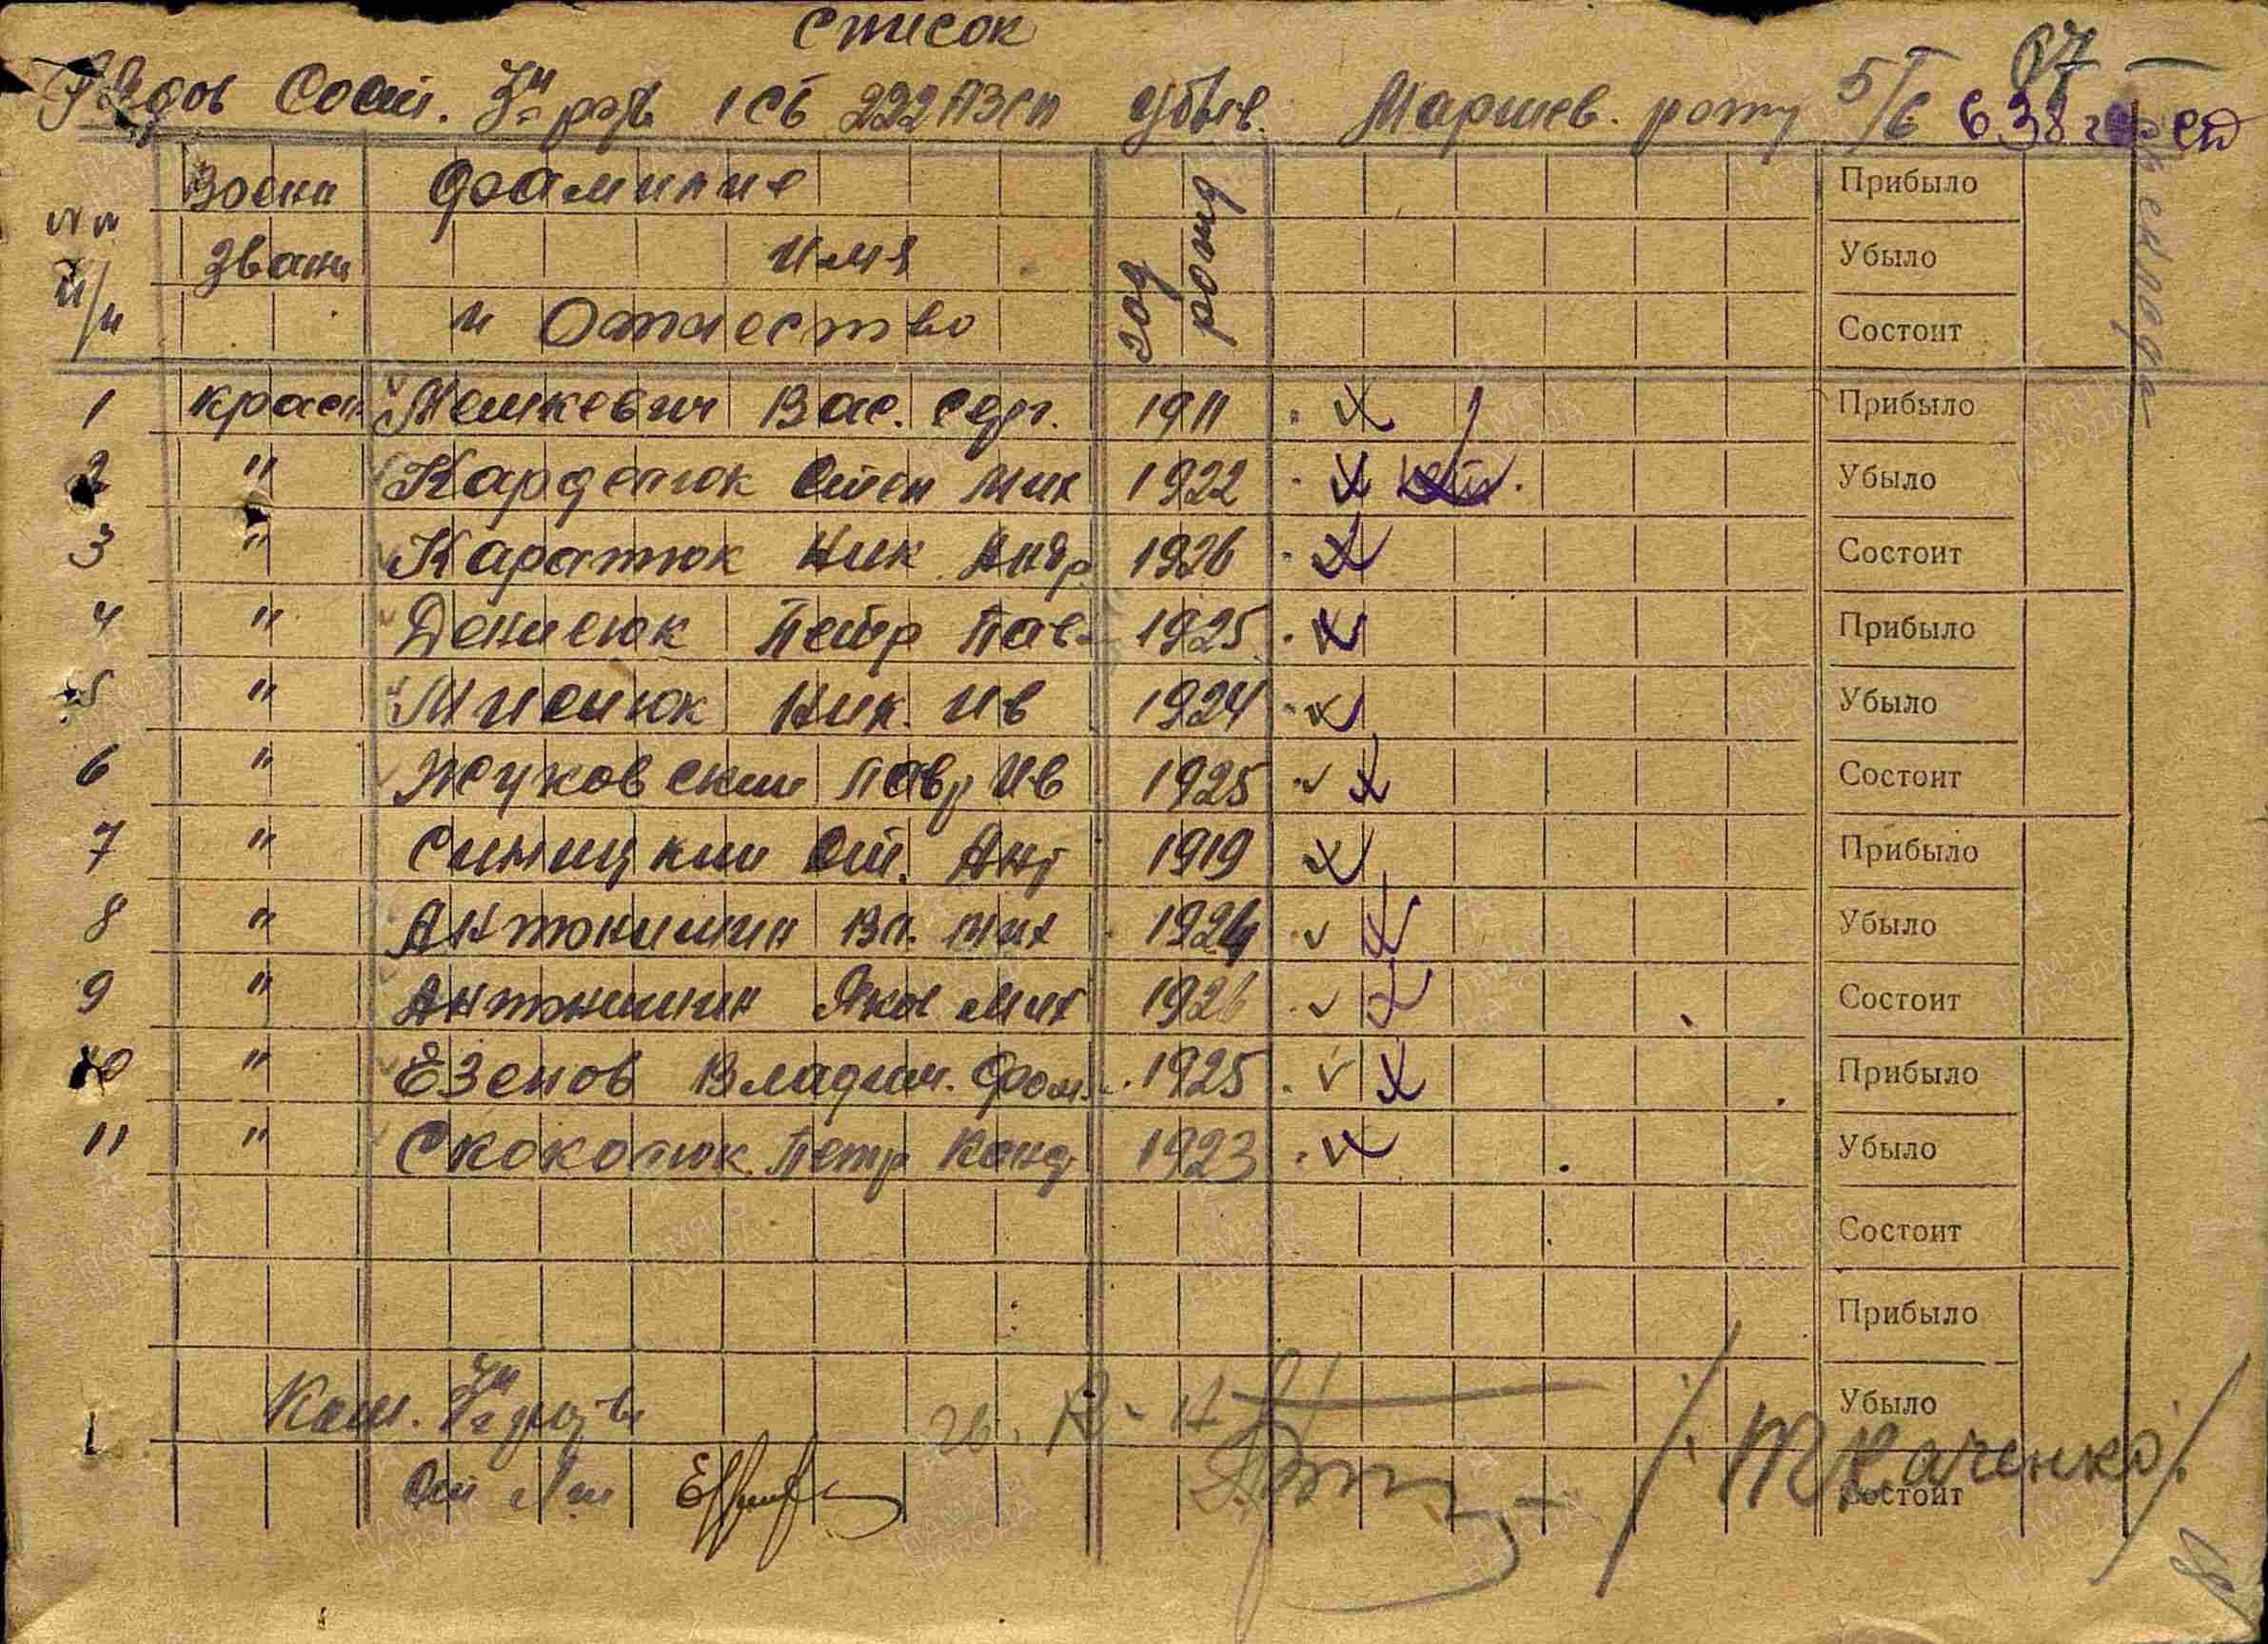 Список
Рядов Сост. 3й роты 1 СБ 222 АЗСП убыв. Маршев. роту 5/6 638 сп
67
NN п/п Воен Звани Фамилие Имя и Отчество год рожд Прибыло Убыло Состоит
1 красн Мешкевич Вас. Серг. 1911 Прибыло
2 " Карденюк Степ Мих 1922 Убыло
3 " Каратюк Ник Андр 1926 Состоит
4 " Денисюк Петр Пав. 1925 Прибыло
5 " Мисиюк Ник. Ив 1924 Убыло
6 " Жуковский Лавр Ив 1925 Состоит
7 " Синицкии Ст. Ант 1919 Прибыло
8 " Антонишин Вл. Мих 1924 Убыло
9 " Антонишин Яков Мих 1926 Состоит
10 " Езенов Владим. Фом. 1925 Прибыло
11 " Скокотюк Петр Конд 1923 Убыло
Состоит
Прибыло
Ком. 3й роты Убыло
Ст Лт /Ткаченко/
Состоит